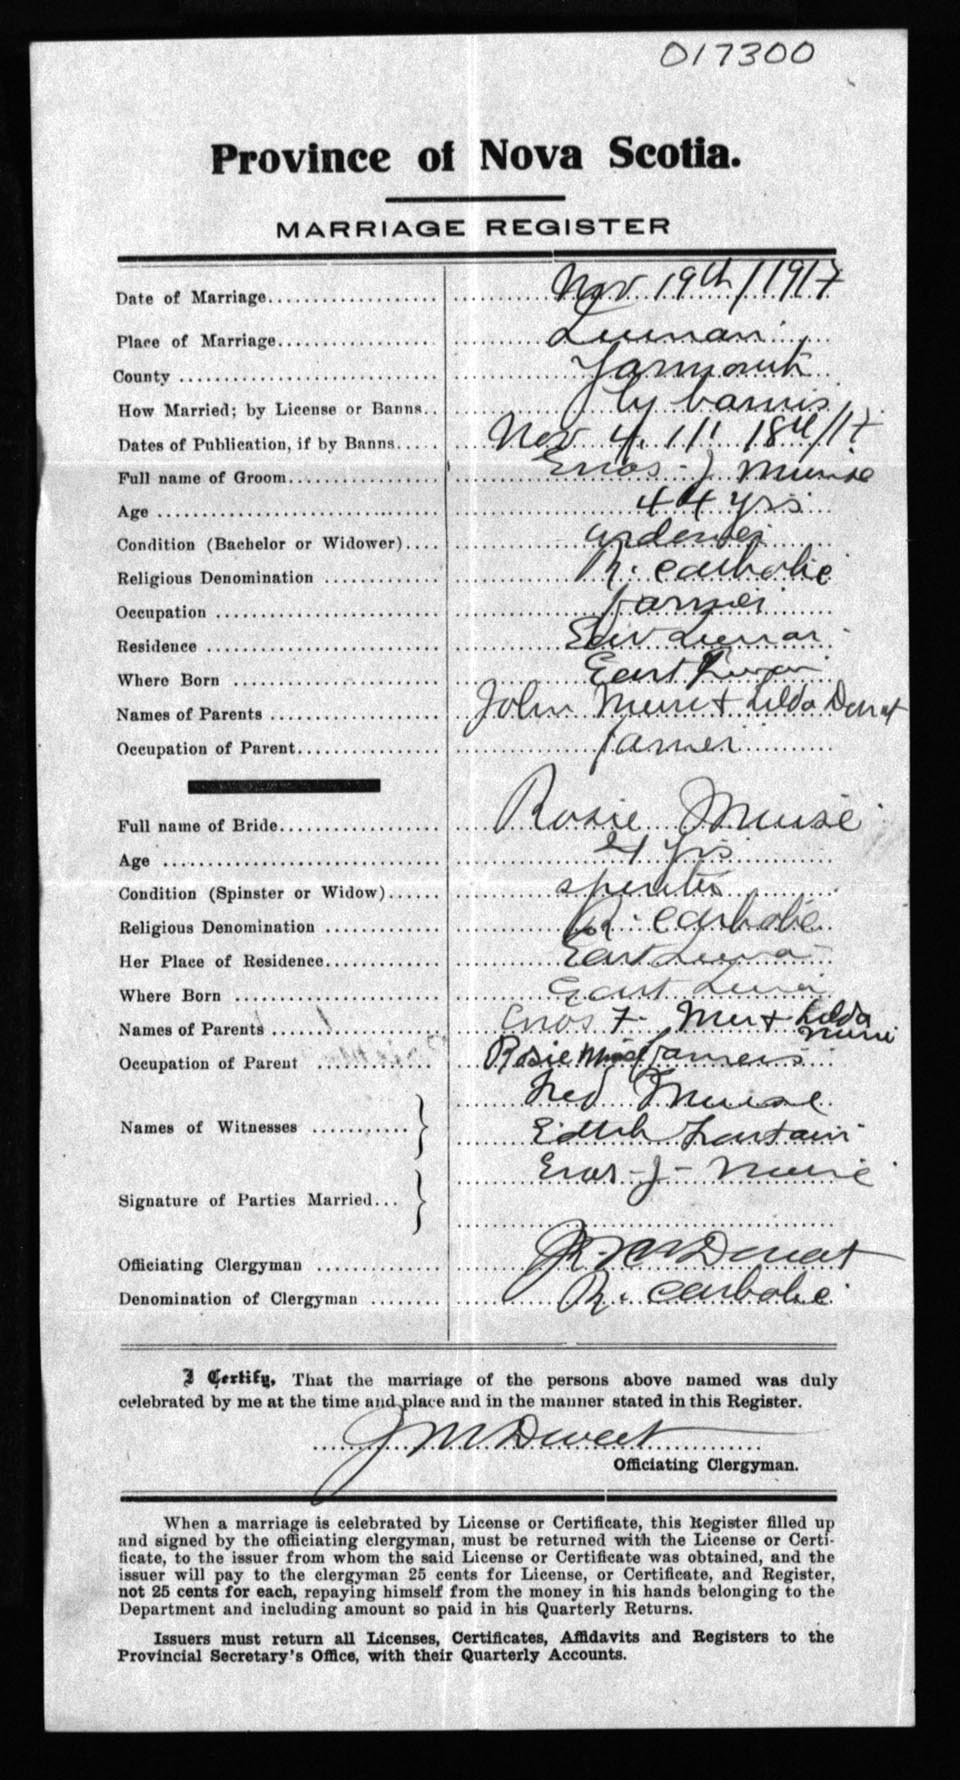 017300
Province of Nova Scotia.
MARRIAGE REGISTER
Date of Marriage Nov 19th / 1917
Place of Marriage
County Yarmouth
How Married; by License or Banns by banns
Dates of Publication, if by Banns Nov 4, 11 18th/17
Full name of Groom Enos J Muise
Age 44 yrs
Condition (Bachelor or Widower) widower
Religious Denomination R. Catholic
Occupation farmer
Residence
Where Born East
Names of Parents John Muise + Lilda
Occupation of Parent farmer
Full name of Bride Rosie Muise
Age 21 yrs
Condition (Spinster or Widow) spinster
Religious Denomination R. Catholic
Her Place of Residence East
Where Born East
Names of Parents Enos F. + Lilda
Occupation of Parent Rosie Muise farmers
Names of Witnesses Fred Muise
Edith
Signature of Parties Married Enos - J - Muise
Officiating Clergyman
Denomination of Clergyman R. Catholic
I Certify, That the marriage of the persons above named was duly
celebrated by me at the time and place and in the manner stated in this Register.
Officiating Clergyman.
When a marriage is celebrated by License or Certificate, this Register filled up
and signed by the officiating clergyman, must be returned with the License or Certi-
ficate, to the issuer from whom the said License or Certificate was obtained, and the
issuer will pay to the clergyman 25 cents for License, or Certificate, and Register,
not 25 cents for each, repaying himself from the money in his hands belonging to the
Department and including amount so paid in his Quarterly Returns.
Issuers must return all Licenses, Certificates, Affidavits and Registers to the
Provincial Secretary's Office, with their Quarterly Accounts.